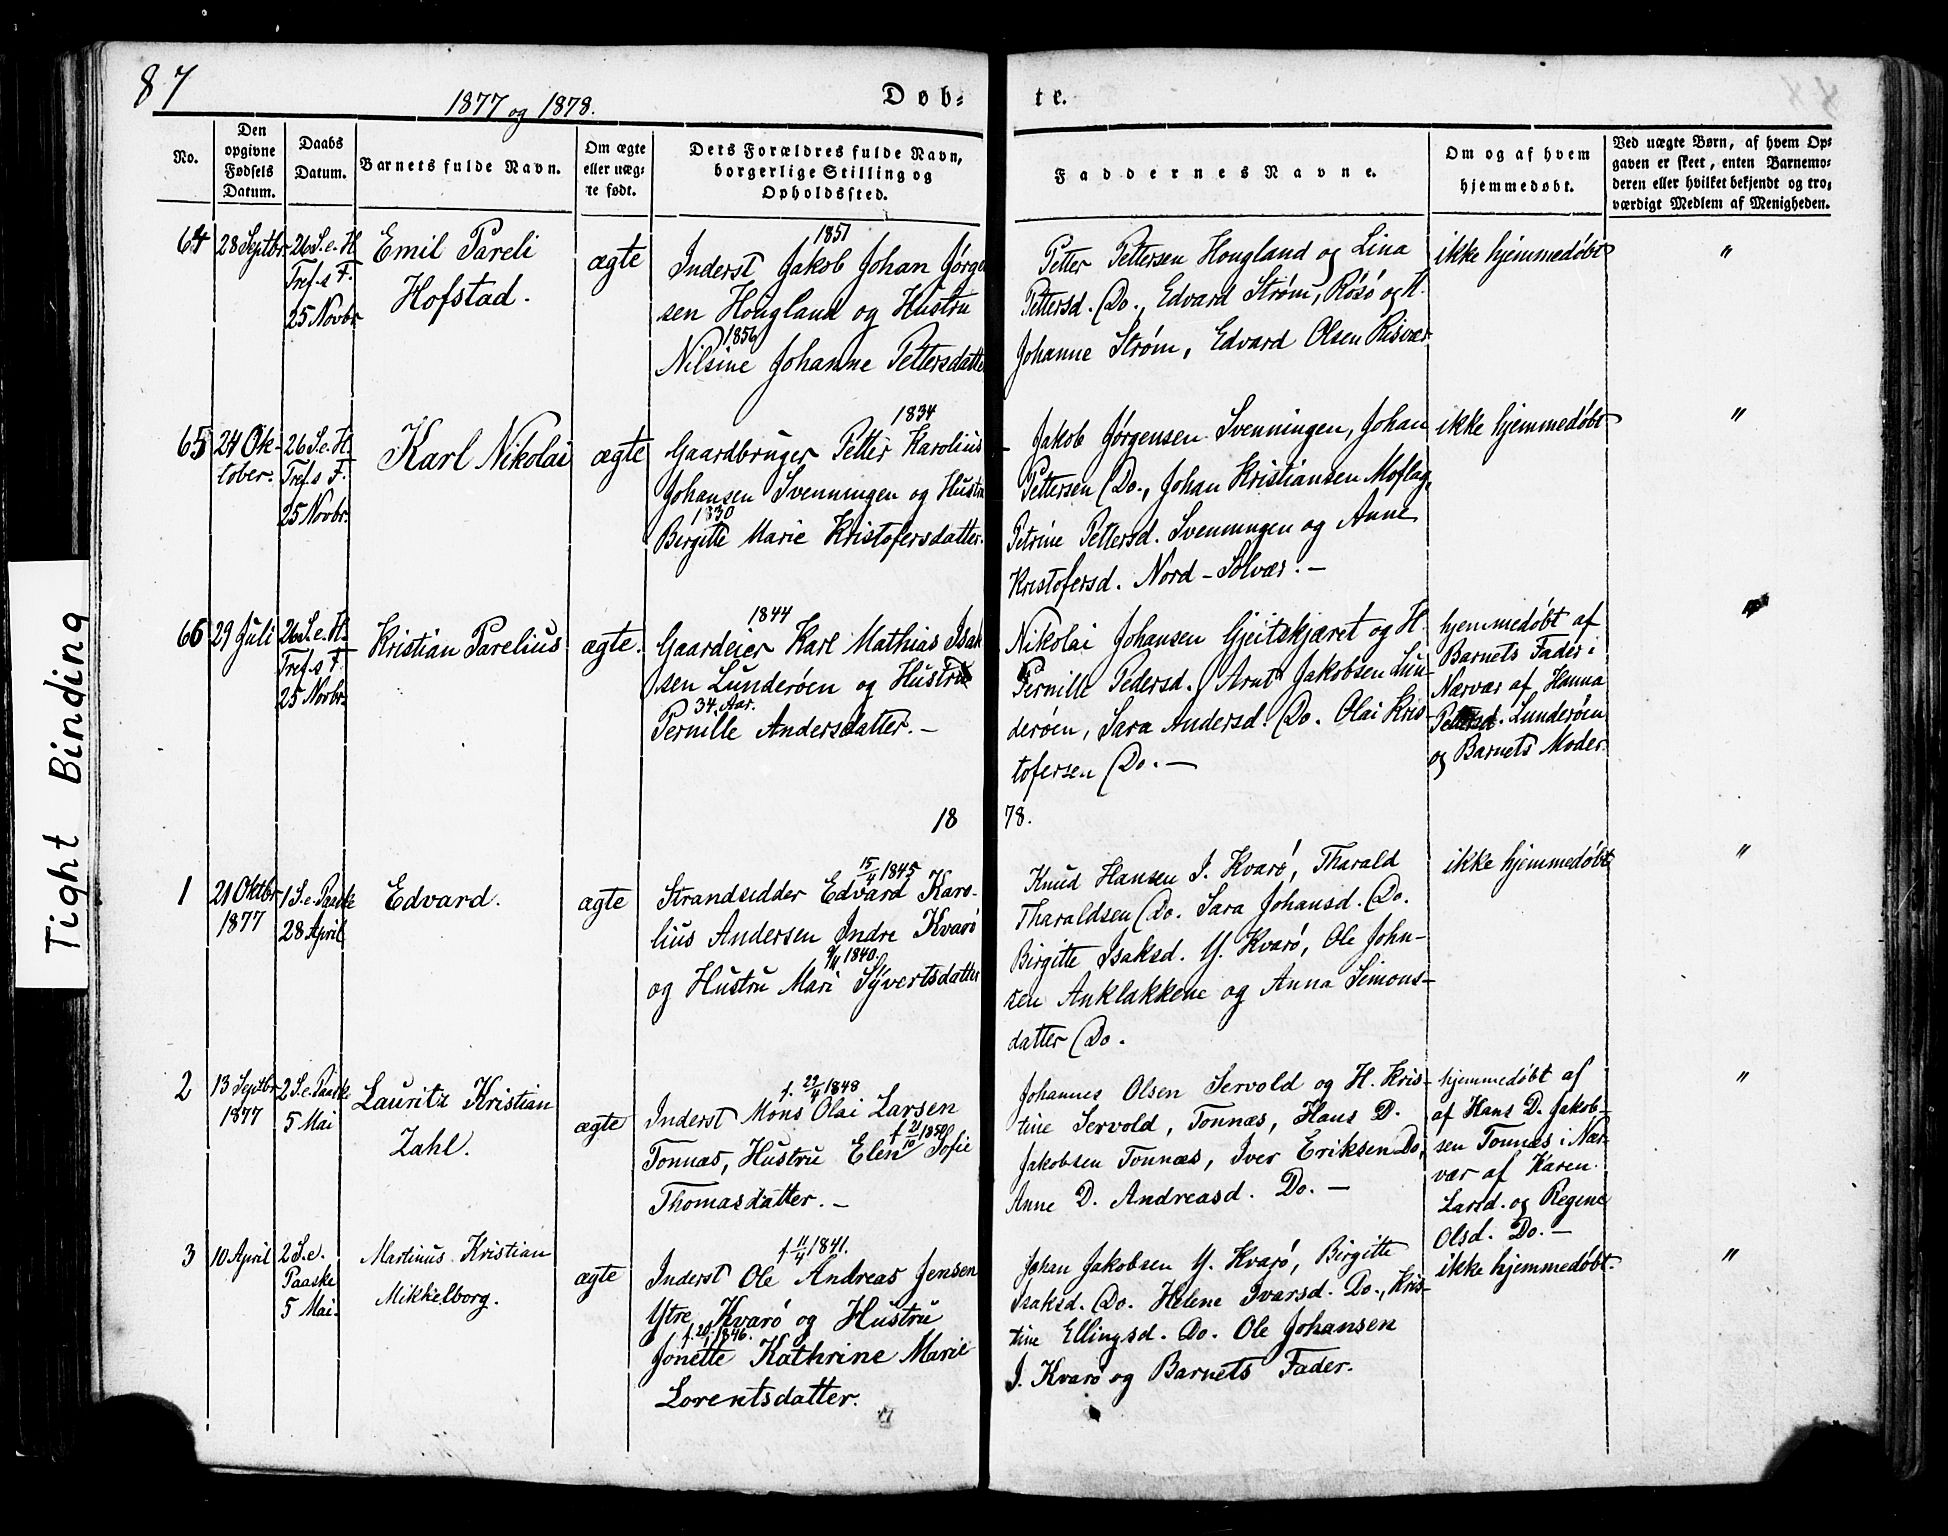 87
1877 og 1878.
Døb-
te.
No.
Den
opgivne
Fødsels
Datum.
Daabs
Datum.
Barnets fulde Navn.
Om ægte
eller uæg-
te født.
Dets Forældres fulde Navn,
borgerlige Stilling og
Opholdssted.
Faddernes Navne.
Om og af hvem
hjemmedøbt.
Ved uægte Børn, af hvem Op-
gaven er skeet, enten Barnemo-
deren eller hvilket bekjendt og tro-
værdigt Medlem af Menigheden.
64
28 Septbr.
26 S. e. H.
Tref.s F.
25 Novbr.
Emil Pareli
Hofstad.
ægte
1851
Inderst Jakob Johan Jørgen
sen Hougland og Hustru
1856
Nilsine Johanne Pettersdatter
Petter Pettersen Hougland og Lina
Pettersd. Do., Edvard Strøm, Rösö og H.
Johanne Strøm, Edvard Olsen Risvær
ikke hjemmedøbt
"
65
24 Ok-
tober.
26 S. e. H.
Tref.s F.
25 Novbr.
Karl Nikolai
ægte
1834
Gaardbruger Petter Karolius
Johansen Svenningen og Hustru
1830
Birgitte Marie Kristofersdatter.
Jakob Jørgensen Svenningen, Johan
Pettersen Do., Johan Kristiansen Moflag,
Petrine Pettersd. Svenningen og Anne
Kristofersd. Nord-Solvær.-
ikke hjemmedøbt
"
66
29 Juli
26 S. e. H.
Tref.s F.
25 Novbr.
Kristian Parelius
ægte.
1844
Gaardeier Karl Mathias Isak
sen Lunderöen og Hustru
34 Aar.
Pernille Andersdatter.-
Nikolai Johansen Gjeitskjæret og H.
Pernille Pedersd. Arnt Jakobsen Lun-
deröen, Sara Andersd. Do. Olai Kris-
tofersen Do.-
hjemmedøbt af
Barnets Fader i
Nærvær af Hanna
Pettersd. Lunderöen
og Barnets Moder.
1878.
1
21 Oktbr
1877
1 S. e. Paaske
28 April
Edvard.
ægte
15/4 1845
Strandsidder Edvard Karo-
lius Andersen Indre Kvarö
9/11 1840.
og Hustru Mari Syvertsdatter
Knud Hansen I. Kvarö, Tharald
Tharaldsen Do. Sara Johansd. Do.
Birgitte Isaksd. Y. Kvarö, Ole John-
sen Anklakkene og Anna Simons-
datter Do.
ikke hjemmedøbt
"
2
13 Septbr
1877
2 S. e. Paaske
5 Mai
Lauritz Kristian
Zahl.
ægte
f. 29/4 1848
Inderst Mons Olai Larsen
f 21/10 1850
Tonnæs, Hustru Elen Sofie
Thomasdatter.-
Johannes Olsen Servold og H. Kris-
tine Servold, Tonnæs, Hans D.
Jakobsen Tonnæs, Iver Eriksen Do,
Anne D. Andreasd. Do.-
hjemmedøbt af
af Hans D. Jakob-
sen Tonnæs i Nær-
vær af Karen
Larsd. og Regine
Olsd. Do.-
"
3
10 April
2 S. e.
Paaske
5 Mai.
Martinus Kristian
Mikkelborg.
ægte
f 11/4 1841.
Inderst Ole Andreas Jensen
Ytre Kvarö og Hustru
Jonette Kathrine Marie
Lorentsdatter.
Johan Jakobsen Y. Kvarö, Birgitte
Isaksd. Do. Helene Ivarsd. Do., Kris-
tine Ellingsd. Do. Ole Johansen
I. Kvarö og Barnets Fader.
ikke hjemmedøbt.
"
Tight Binding